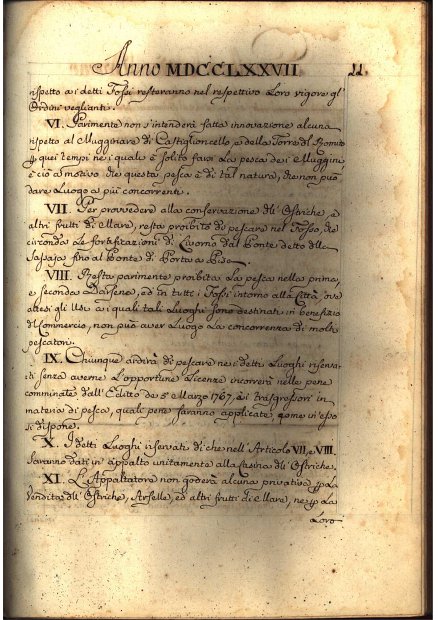 Anno MDCCLXXVII 11.
rispetto ai detti Fossi resteranno nel respettivo Loro vigore gl'
Ordini veglianti.
VI. Parimente non s'intenderà fatta innovazione alcuna
rispeto al Mugginare di Castiglioncello, e della Torre del Romito
p quei tempi nei quali è solito farsi La pesca dei Muggini,
e ciò a motivo che questa pesca è di tal natura, che non può
dare Luogo a più concorrenti.
VII. Per provvedere alla conservazione dell' Ostriche, e
altri frutti di Mare, resta proibito di pescare nel Fosso, che
circonda Le fortificazioni di Livorno dal Ponte detto della
Sassaja fino al Ponte di Porta a Pisa.
VIII. Resta parimente proibita La pesca nella prima,
e seconda Darsena, ed in tutti i Fossi intorno alla Città, ove
attesi gli Usi ai quali tali Luoghi sono destinati in benefizio
del Commercio, non può aver Luogo La concorrenza di molti
pescatori.
IX. Chiunque ardirà di pescare nei detti Luoghi riserva-
ti senza averne L'opportune Licenze incorrerà nelle pene
comminate dall' Editto de 5 Marzo 1767, ai trasgressori in
materia di pesca, quali pene saranno applicate, come in esso
si dispone.
X. I detti Luoghi riservati di che nell' Articolo VII, e VIII.
saranno dati in appalto unitamente alla Casina dell' Ostriche.
XI. L'Appaltatore non goderà alcuna privativa p La
Vendita dell' Ostriche, Arselle, ed altri frutti di Mare, ne p La
Loro